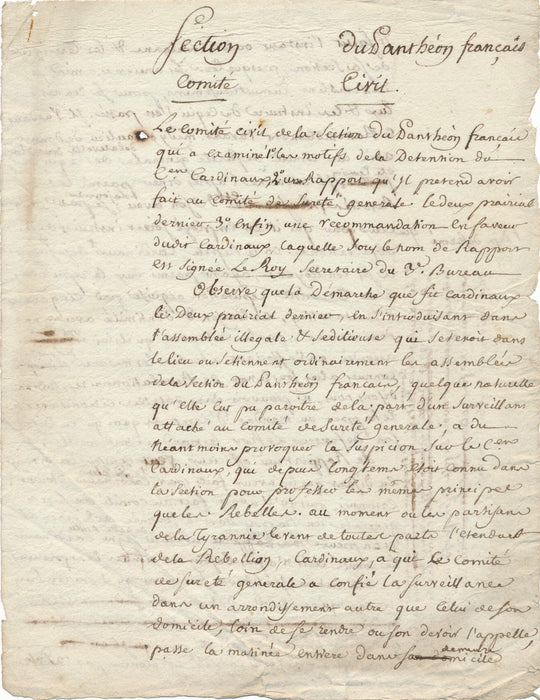 Section du Panthéon français
Comité Civil.
Le Comité civil de la Section du Panthéon français
qui a examiné 1°. les motifs de la Detention du
Cen Cardinaux 2° un Rapport qu'il pretend avoir
fait au Comité de sureté generale le deux prairial
dernier 3°. enfin une recommandation en faveur
dudit Cardinaux, laquelle sous le nom de Rapport
est signée Le Roy Secretaire du 3e. Bureau
Observe que la Démarche que fit Cardinaux
le deux prairial dernier, en s'introduisant dans
l'assemblée illegale & seditieuse qui se tenoit dans
le lieu ou se tiennent ordinairement les assemblées
de la Section du Panthéon francais, quelque naturelle
qu'elle eut pu paroitre de la part d'un surveillant
attaché au Comité de Sureté generale, a du
néantmoins provoquer la suspicion sur le Cen
Cardinaux, qui depuis longtems etoit connu dans
la Section pour professer les même principes
que les Rebelles. au moment ou les partisans
de la Tyrannie levent de toutes parts l'etendart
de la Rebellion, Cardinaux, a qui le Comité
de sureté generale a confié la surveillance
dans un arrondissement autre que celui de son
domicile, loin de se rendre ou son devoir l'appelle,
passe la matinée entiere dans sa demeure
domicile